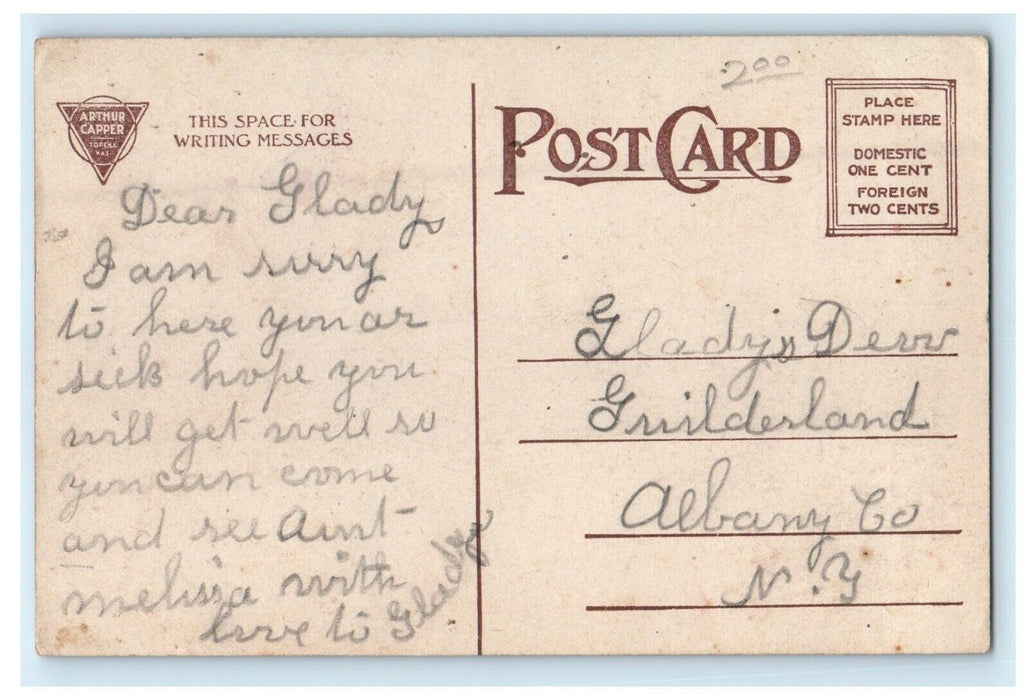 ARTHUR
CAPPER
TOPEKA
KAS.
THIS SPACE FOR
WRITING MESSAGES
Dear Gladys
I am surry
to here you ar
sick hope you
will get well so
you can come
and see Aunt
melissa with
love to Gladys
2.00
POST CARD
PLACE
STAMP HERE
DOMESTIC
ONE CENT
FOREIGN
TWO CENTS
Gladys
Guilderland
Albany Co
N.Y